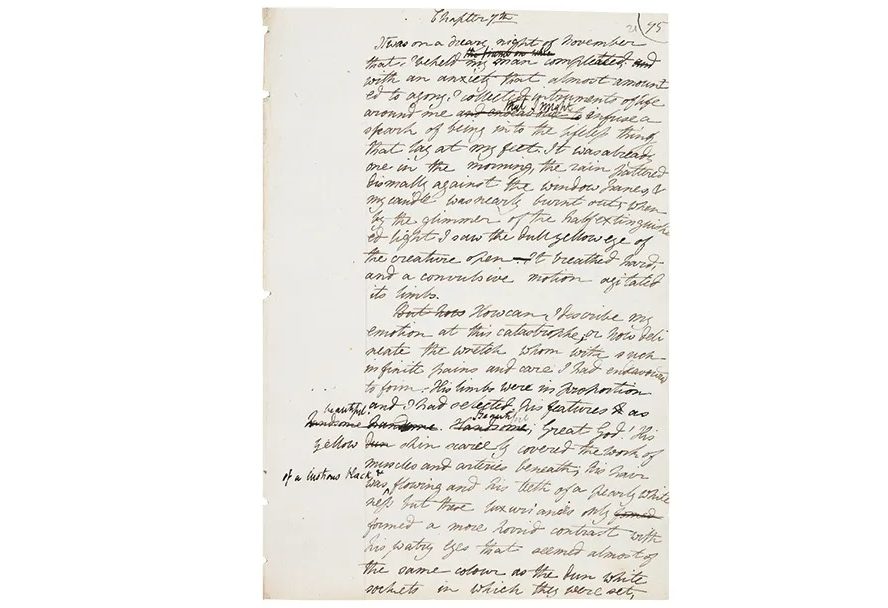 Chapter 7th
21 75
It was on a dreary night of November
the frame on whic
that I beheld my man completed and
with an anxiety that almost amount
ed to agony I collected instruments of life
that I might
around me and endeavour to infuse a
spark of being into the lifeless thing
that lay at my feet. It was already
one in the morning, the rain pattered
dismally against the window panes, &
my candle was nearly burnt out, when
by the glimmer of the half extinguish
ed light I saw the dull yellow eye of
the creature open - It breathed hard,
and a convulsive motion agitated
its limbs.
But how How can I describe my
emotion at this catastrophe, or how deli
neate the wretch whom with such
infinite pains and care I had endeavoured
to form. His limbs were in proportion
and I had selected his features as
beautiful.
beautiful
handsome handsome. Handsome, Great God! His
yellow dun skin scarcely covered the work of
muscles and arteries beneath; his hair
of a lustrous black, &
was flowing and his teeth of a pearly white
ness but these luxuriances only formed
formed a more horrid contrast with
his watry eyes that seemed almost of
the same colour as the dun white
sockets in which they were set,